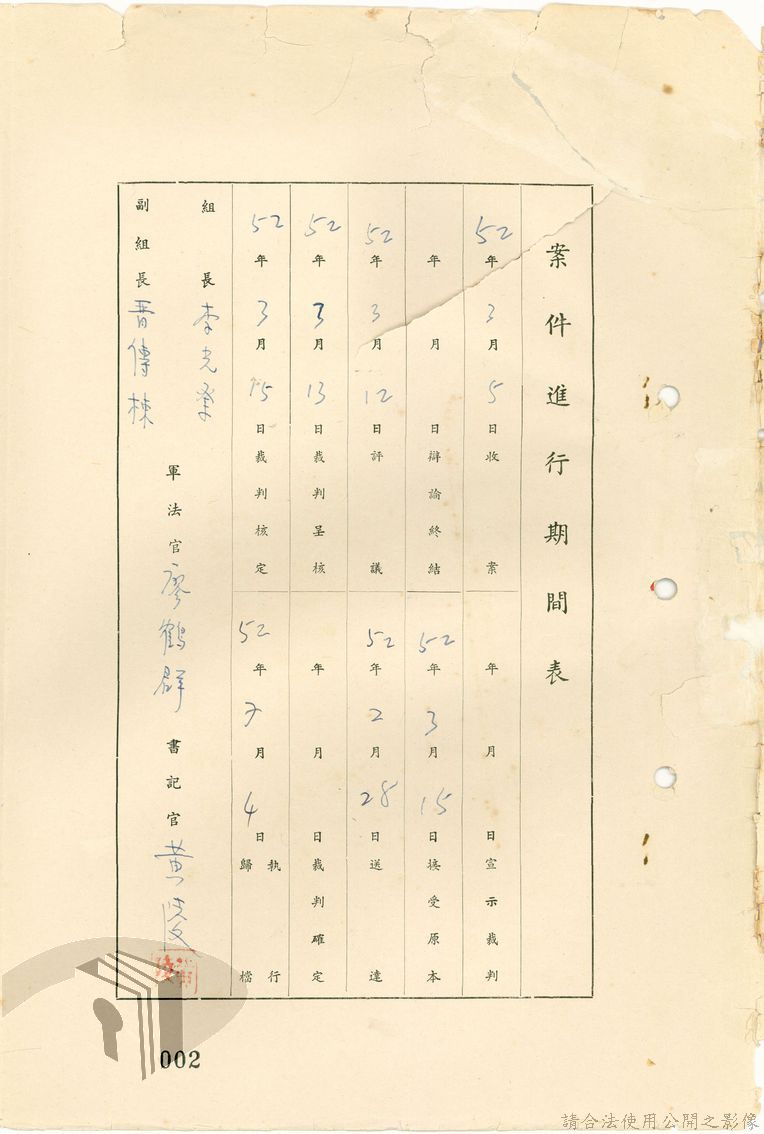 案件進行期間表
52年3月5日收案
年月日宣示裁判
年月日辯論終結
52年3月15日接受原本
52年3月12日評議
52年2月28日送達
52年3月13日裁判呈核
年月日裁判確定
52年3月15日裁判核定
52年7月4日執行歸檔
組長李光榮
副組長晋傳棟
軍法官廖鶴群
書記官黃陵
002
請合法使用公開之影像